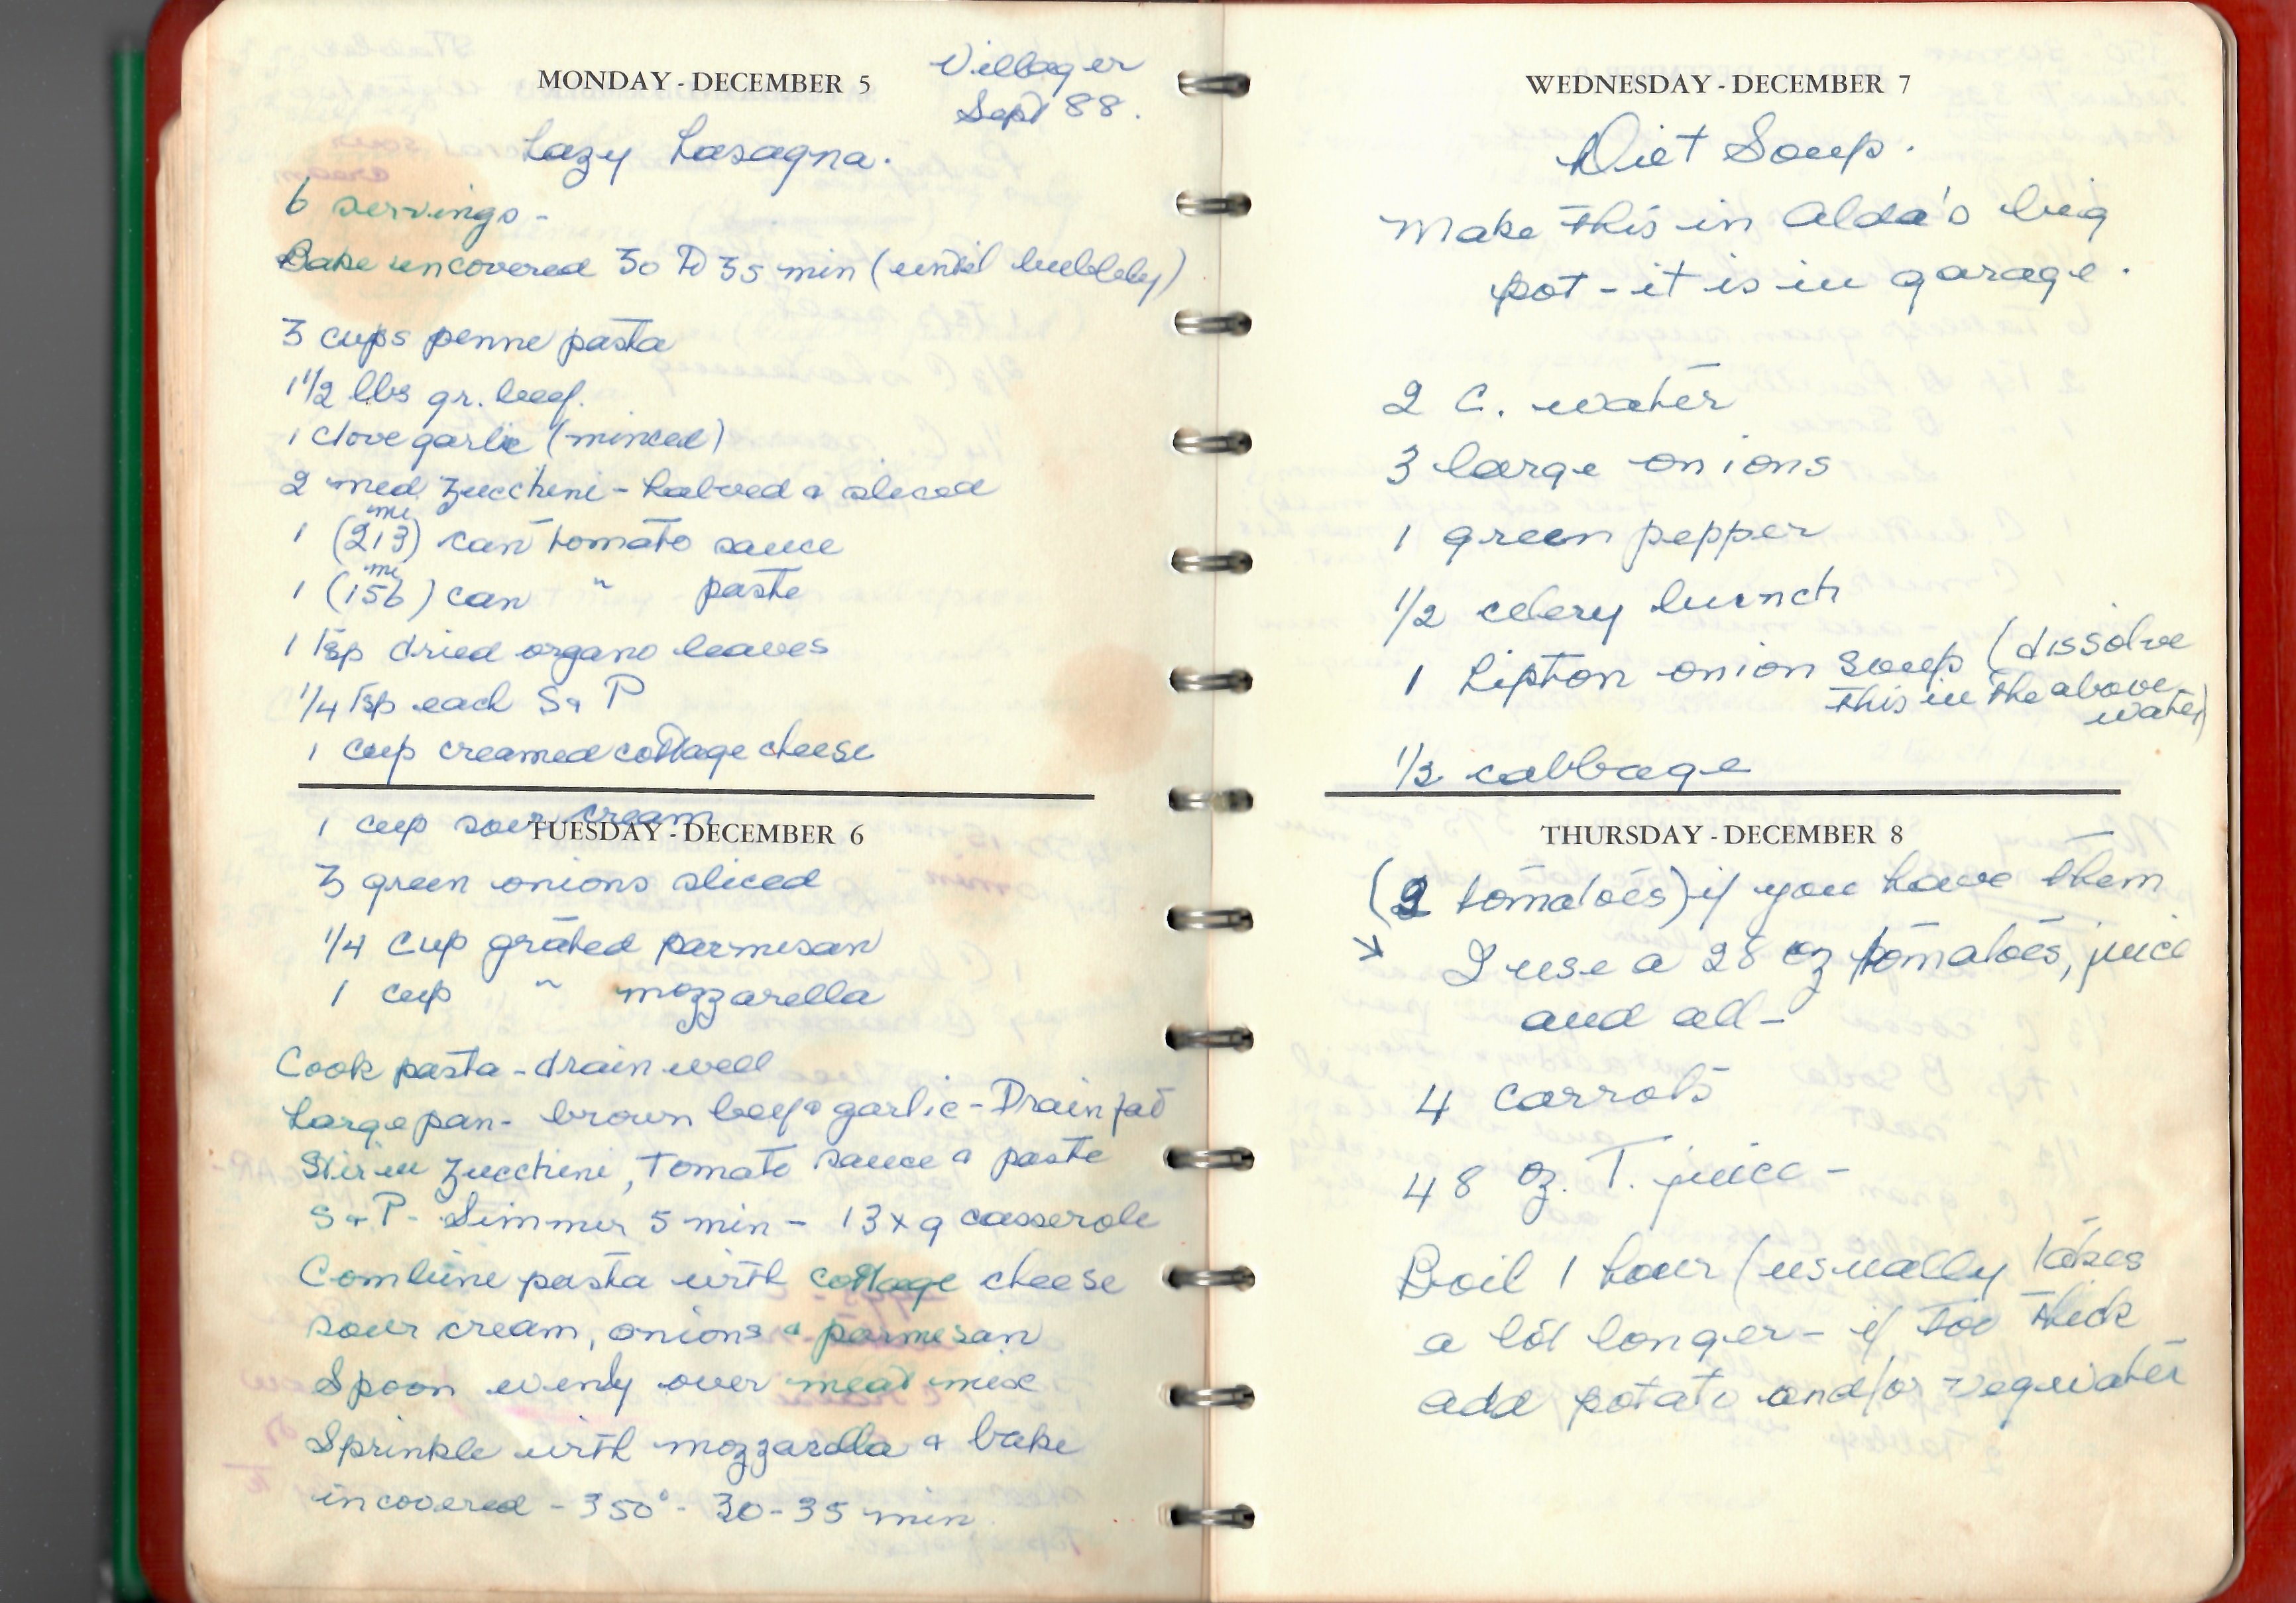 MONDAY - DECEMBER 5
Villager
Sept 88.
Lazy Lasagna.
6 servings -
Bake uncovered 30 to 35 min (until bubbly)
3 cups penne pasta
1 1/2 lbs gr. beef.
1 clove garlic (minced)
2 med zucchini - halved & sliced
1 (213 ml) can tomato sauce
1 (156 ml) can " paste
1 tsp dried organo leaves
1/4 tsp each S & P
1 cup creamed cottage cheese
1 cup sour cream
TUESDAY - DECEMBER 6
3 green onions sliced
1/4 cup grated parmesan
1 cup " mozzarella
Cook pasta - drain well
Large pan - brown beef & garlic - Drain fat
Stir in zucchini, tomato sauce & paste
S & P - Simmer 5 min - 13 x 9 casserole
Combine pasta with cottage cheese
sour cream, onions & parmesan
Spoon evenly over meat mix
Sprinkle with mozzarella & bake
uncovered - 350° - 30 - 35 min.
WEDNESDAY - DECEMBER 7
Diet Soup.
Make this in Alda's big
pot - it is in garage.
2 C. water
3 large onions
1 green pepper
1/2 celery bunch
1 Lipton onion soup (dissolve
this in the above
water)
1/2 cabbage
THURSDAY - DECEMBER 8
(2 tomatoes) if you have them
→ I use a 28 oz tomatoes, juice
and all -
4 carrots
48 oz. T. juice -
Boil 1 hour (usually takes
a lot longer - if too thick
add potato and/or veg water